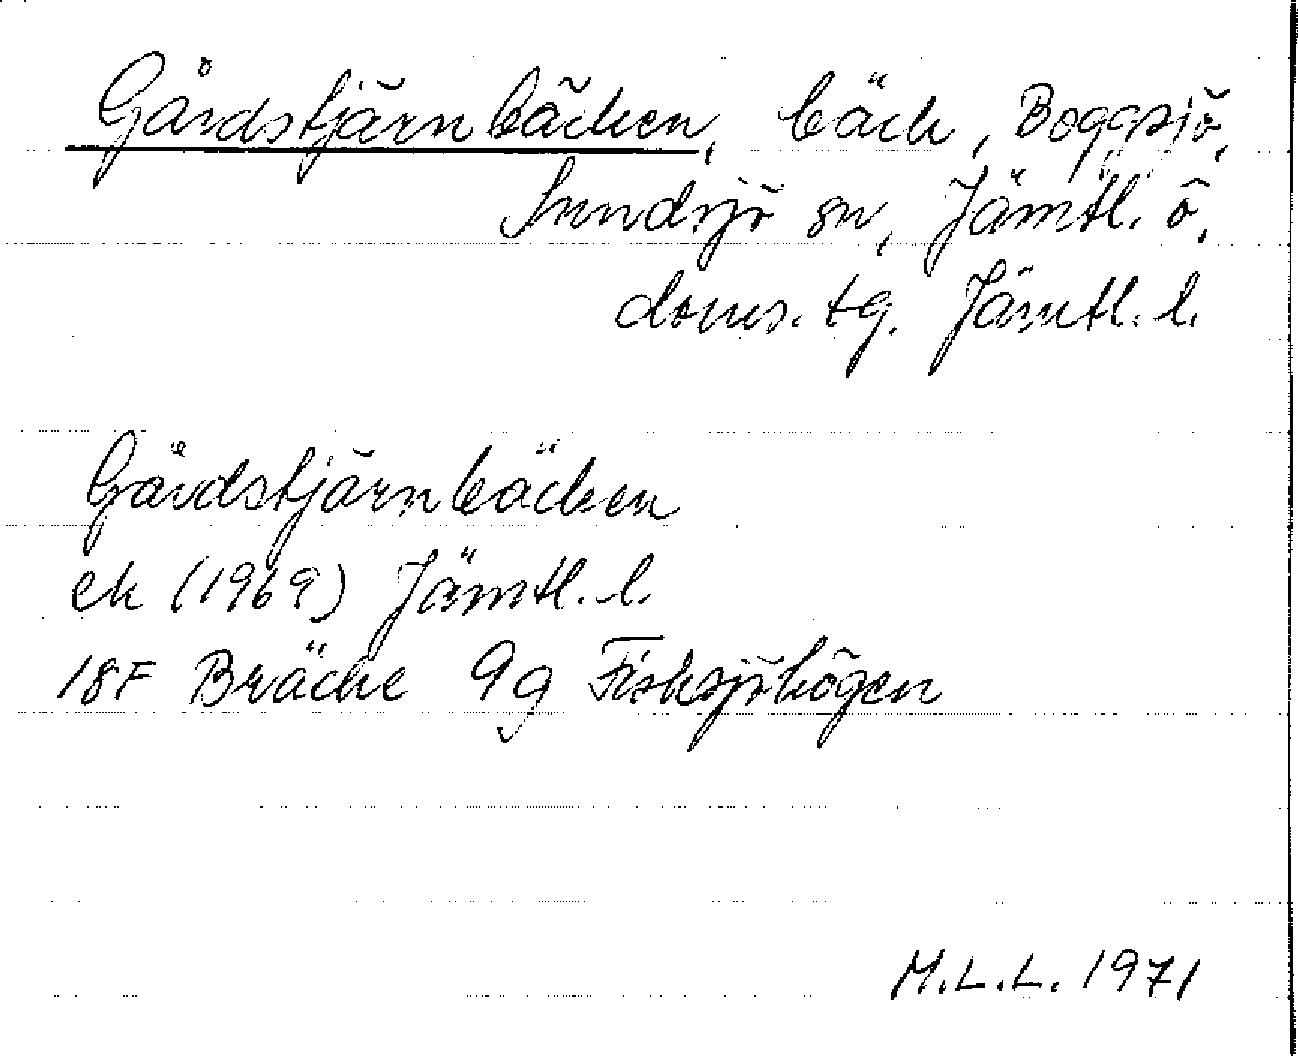 Gårdstjärnbäcken, bäck, Boggsjö,
Sundsjö sn, Jämtl. ö.
doms. tg. Jämtl. l.
Gårdstjärnbäcken
ek (1969) Jämtl. l.
18F Bräcke 9g Fisksjöhögen
M.L.L. 1971